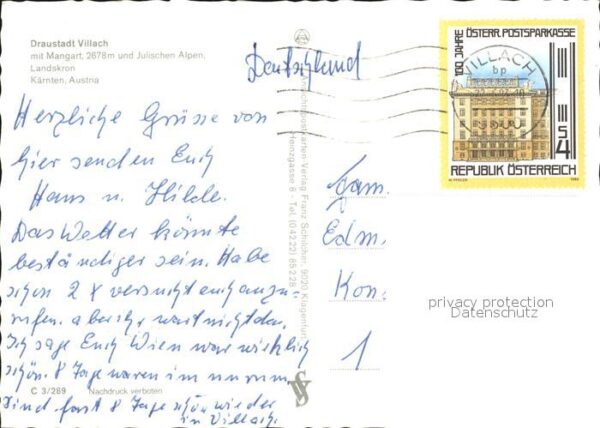 Draustadt Villach
mit Mangart, 2678m und Julischen Alpen,
Landskron
Kärnten, Austria
Deutschland
Herzliche Grüsse von
hier senden Euch
Hans u. Hilde.
Das Wetter könnte
beständiger sein. Habe
schon 2 x versucht euch anzu-
rufen. aber ihr wart nicht da.
Ich sage Euch Wien war wirklich
schön. 8 Tage waren im
sind fast 8 Tage schon wieder
in Villach.
C 3/269 Nachdruck verboten
Verlag Franz Schilcher, 9020 Klagenfurt
Tel. (04222)
Fam.
Edm.
Kon:
1
100 JAHRE ÖSTERR. POSTSPARKASSE
S 4
REPUBLIK ÖSTERREICH
VILLACH
bp
privacy protection
Datenschutz